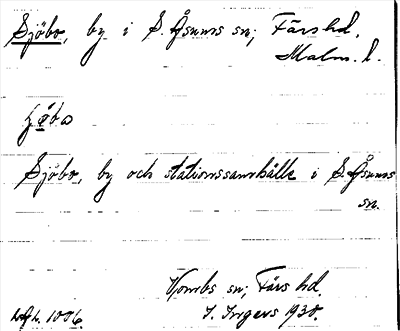 Sjöbo, by i S. Åsums sn, Färs hd,
Malm. l.
Sjöbo, by och stationssamhälle i S. Åsums
sn.
Vombs sn, Färs hd.
I. Ingers 1930.